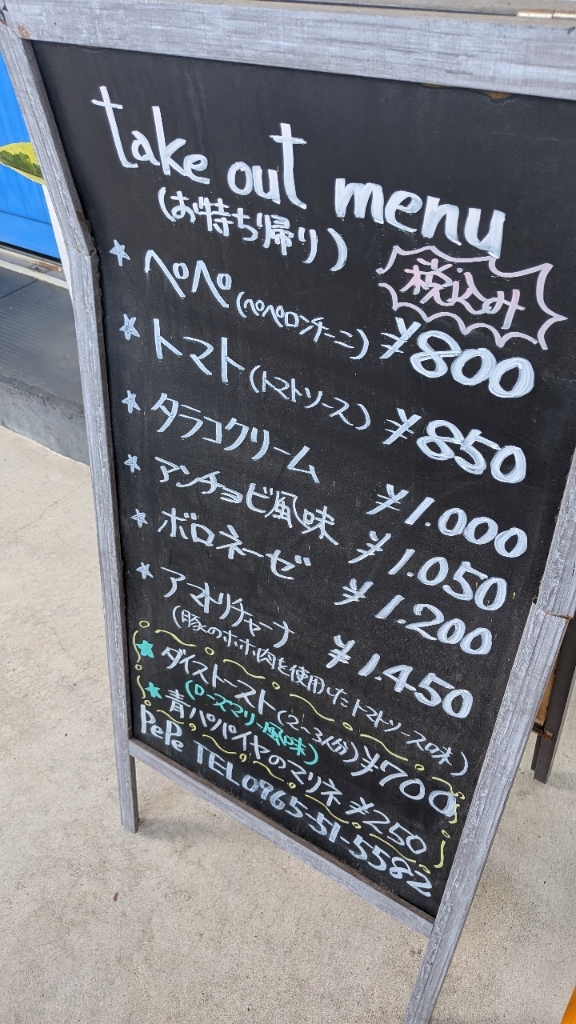 take out menu
(お持ち帰り)
税込み
☆ ペペ(ペペロンチーニ) ¥800
☆ トマト(トマトソース) ¥850
☆ タラコクリーム ¥1.000
☆ アンチョビ風味 ¥1.050
☆ ボロネーゼ ¥1.200
☆ アマトリチャーナ ¥1.450
(豚のホホ肉を使用したトマトソースの味)
★ ダイストースト(2~3人分) ¥700
(ローズマリー風味)
★ 青パパイヤのマリネ ¥250
PePe TEL0965-51-5582